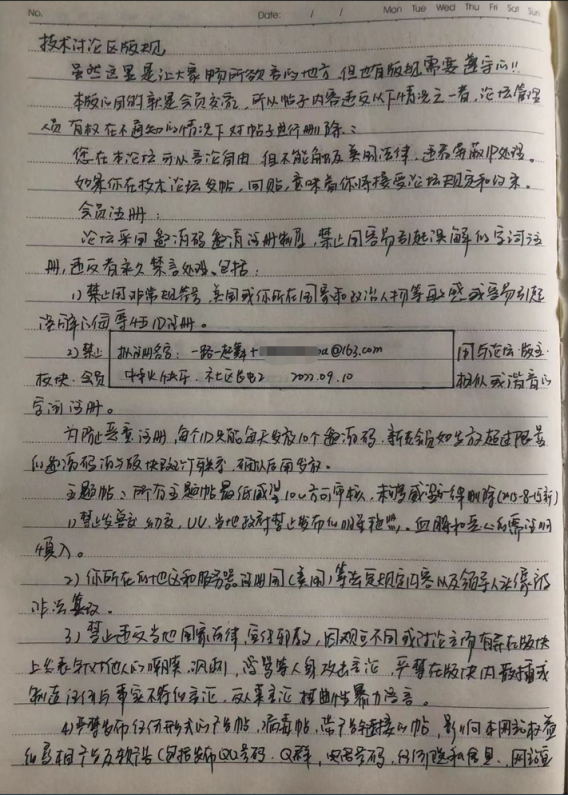 No. Date: / / Mon Tue Wed Thu Fri Sat Sun
技术讨论区版规
虽然这里是让大家畅所欲言的地方,但也有版规需要遵守的!!
本版面目的就是会员交流,所以帖子内容违反以下情况之一者,论坛管理
人员有权在不通知的情况下对帖子进行删除:
您在本论坛可以言论自由,但不能触及美国法律,违者屏蔽IP处理。
如果你在技术论坛发帖,回贴,意味着你得接受论坛规定和约束。
会员注册:
论坛采用邀请码邀请注册制度,禁止用容易引起误解的字词注
册,违反者永久禁言处理。包括:
1)禁止用非常规符号,美国或你所在国家和政治人物等敏感或容易引起
误解的词等作ID注册。
2)禁止 用与论坛版主
拟注册名字:一路一起舞+ @163.com
板块.会员 相似或谐音的
中秋快乐.社区 2 2022.09.10
字词注册。
为防止恶意注册,每个ID只能每天发放10个邀请码,新会员如发放超过限量
的邀请码请与版块 联系,确认后再发放。
主题帖:所有主题帖最低威望10以方可审核,未满威望一律删除(2013-8-15新)
1)禁止发 幼交,UU,当地政府禁止发布的 。血腥和恶心的需注明
慎入。
2)你所在的地区和服务器注册国(美国)等法定规定内容以及领导人法像的
非法集议。
3)禁止违反当地国家法律,宣传邪教,因观点不同或讨论主而有辱在版块
上发表针对他人的嘲笑、讽刺、辱骂等人身攻击言论,严禁在版块内散播或
制造任何与事实不符的言论,反人类言论,扭曲性暴力语言。
4)严禁发布任何形式的广告帖,病毒帖,带广告链接的帖,影响本网站权益
的及相广告及软广告(包括发布QQ号码.Q群,电话号码,任何隐私信息,网站宣